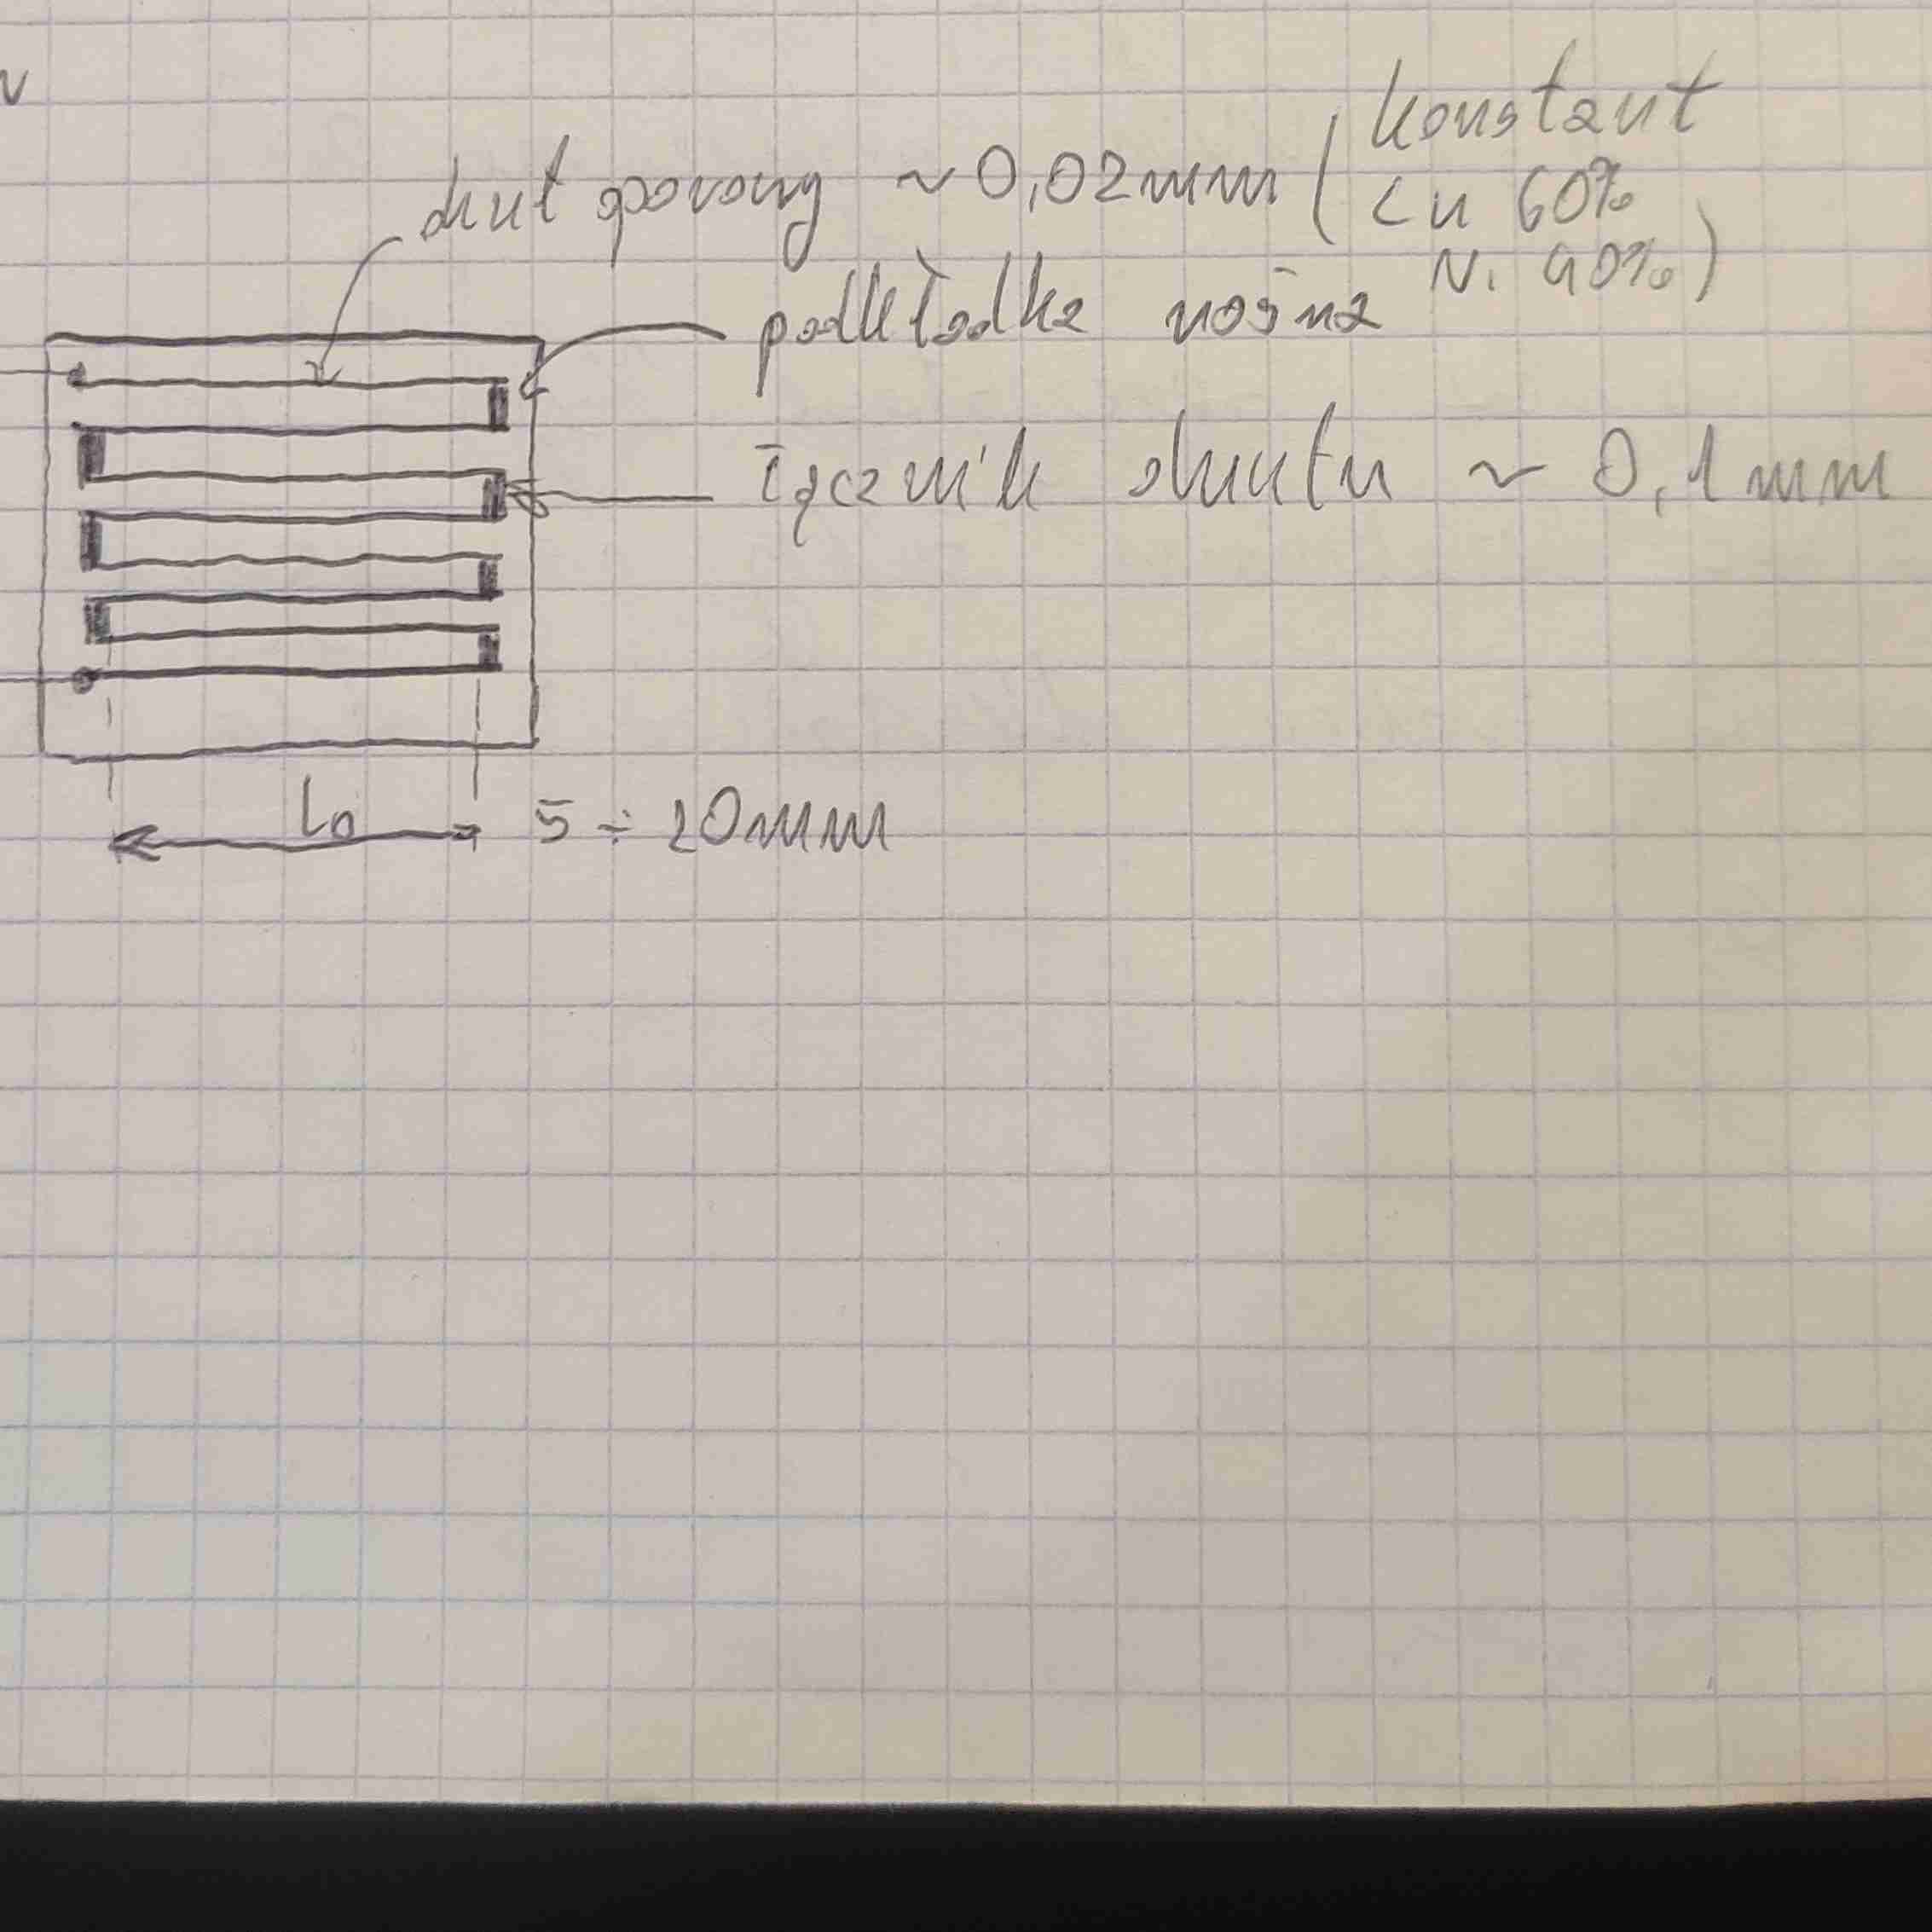 konstant
drut oporowy ~ 0,02mm ( Cu 60%
Ni 40% )
podkładka nośna
łącznik drutu ~ 0,1mm
l0 5 ÷ 20mm